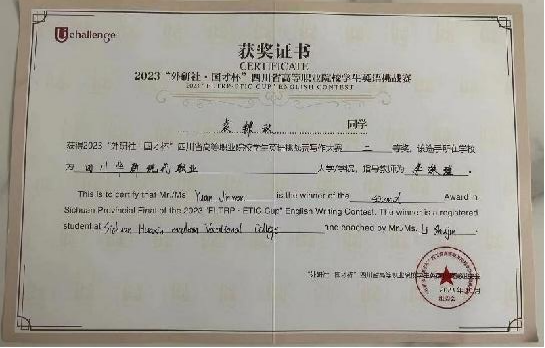 Uchallenge
获奖证书
CERTIFICATE
2023“外研社·国才杯”四川省高等职业院校学生英语挑战赛
2023 "FLTRP·ETIC CUP" ENGLISH CONTEST
同学
获得2023“外研社·国才杯”四川省高等职业院校学生英语挑战赛写作大赛 二 等奖，该选手所在学校
为 四川华新现代职业 大学/学院，指导教师为
This is to certify that Mr./Ms. Yuan is the winner of the second Award in
Sichuan Provincial Final of the 2023 "FLTRP·ETIC Cup" English Writing Contest. The winner is a registered
student at Sichuan Huaxin modern Vocational College and coached by Mr./Ms. Li
“外研社·国才杯”四川省高等职业院校学生英语挑战赛
组委会